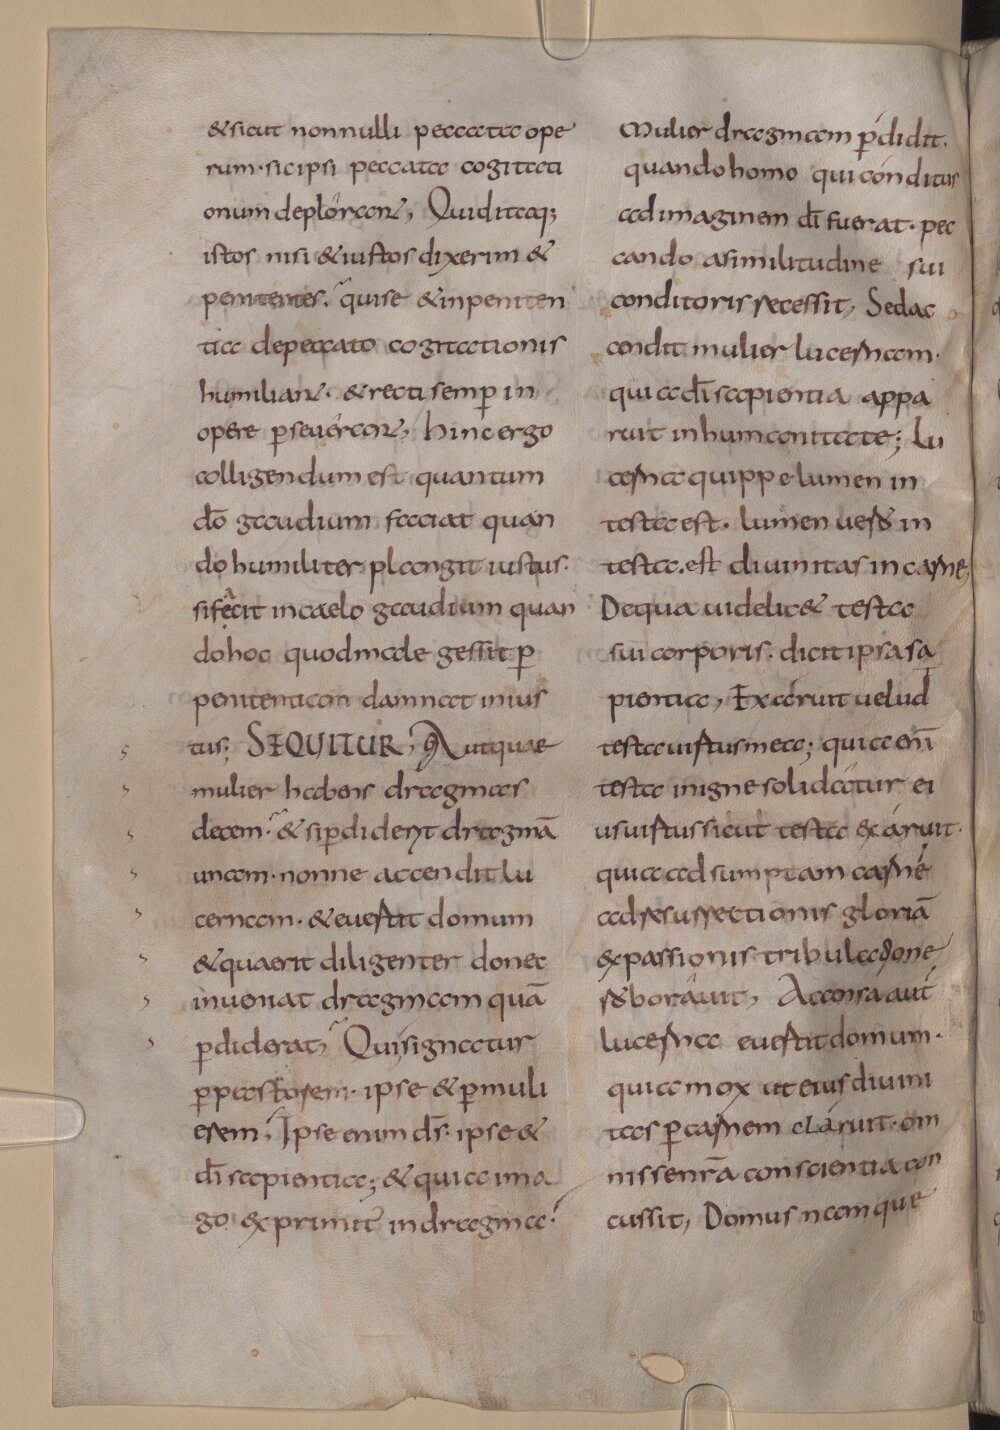 &sicut nonnulli peccata ope
rum·sicipsi peccata cogitati
onum deplorant, Quiditaq;
istos nisi &iustos dixerim &
penitentes. quise &inpeniten
tia depeccato cogitationis
humiliant· &recti semp in
opere pseuerant, hinc ergo
colligendum est quantum
dō gaudium faciat quan
do humiliter plangit iustus·
sifecit incaelo gaudium quan
dohoc quodmale gessit p
penitentiam damnat inius
tus; SEQUITUR, Autquae
mulier habens dragmas
decem· & sipdiderit dragmā
unam· nonne accendit lu
cernam· &euertit domum
&quaerit diligenter donec
inueniat dragmam quā
pdiderat, Quisignatur
ppastorem· ipse &pmuli
erem, Ipse enim ds· ipse &
dī sapientia; &quia ima
go exprimit indragma·
Mulier dragmam pdidit·
quandohomo quiconditus
adimaginem dī fuerat· pec
cando asimilitudine sui
conditoris recessit, Sedac
cendit mulier lucernam·
quia dī sapientia appa
ruit inhumanitate; Lu
cerna quippe lumen in
testa est· lumen uero in
testa·est diuinitas incarne,
Dequa uidelic& testa
sui corporis· dicit ipsa sa
pientia, Exaruit uelud
testa uirtusmea; quia enī
testa inigne solidatur ei
usuirtussicut testa exaruit·
quia adsumptam carnē
adresurrectionis gloriā
expassionis tribulatione
roborauit, Accensa aut
lucerna euertit domum·
quia mox ut eius diuini
tas p carnem claruit· om
nissenrā conscientia con
cussit, Domus namque